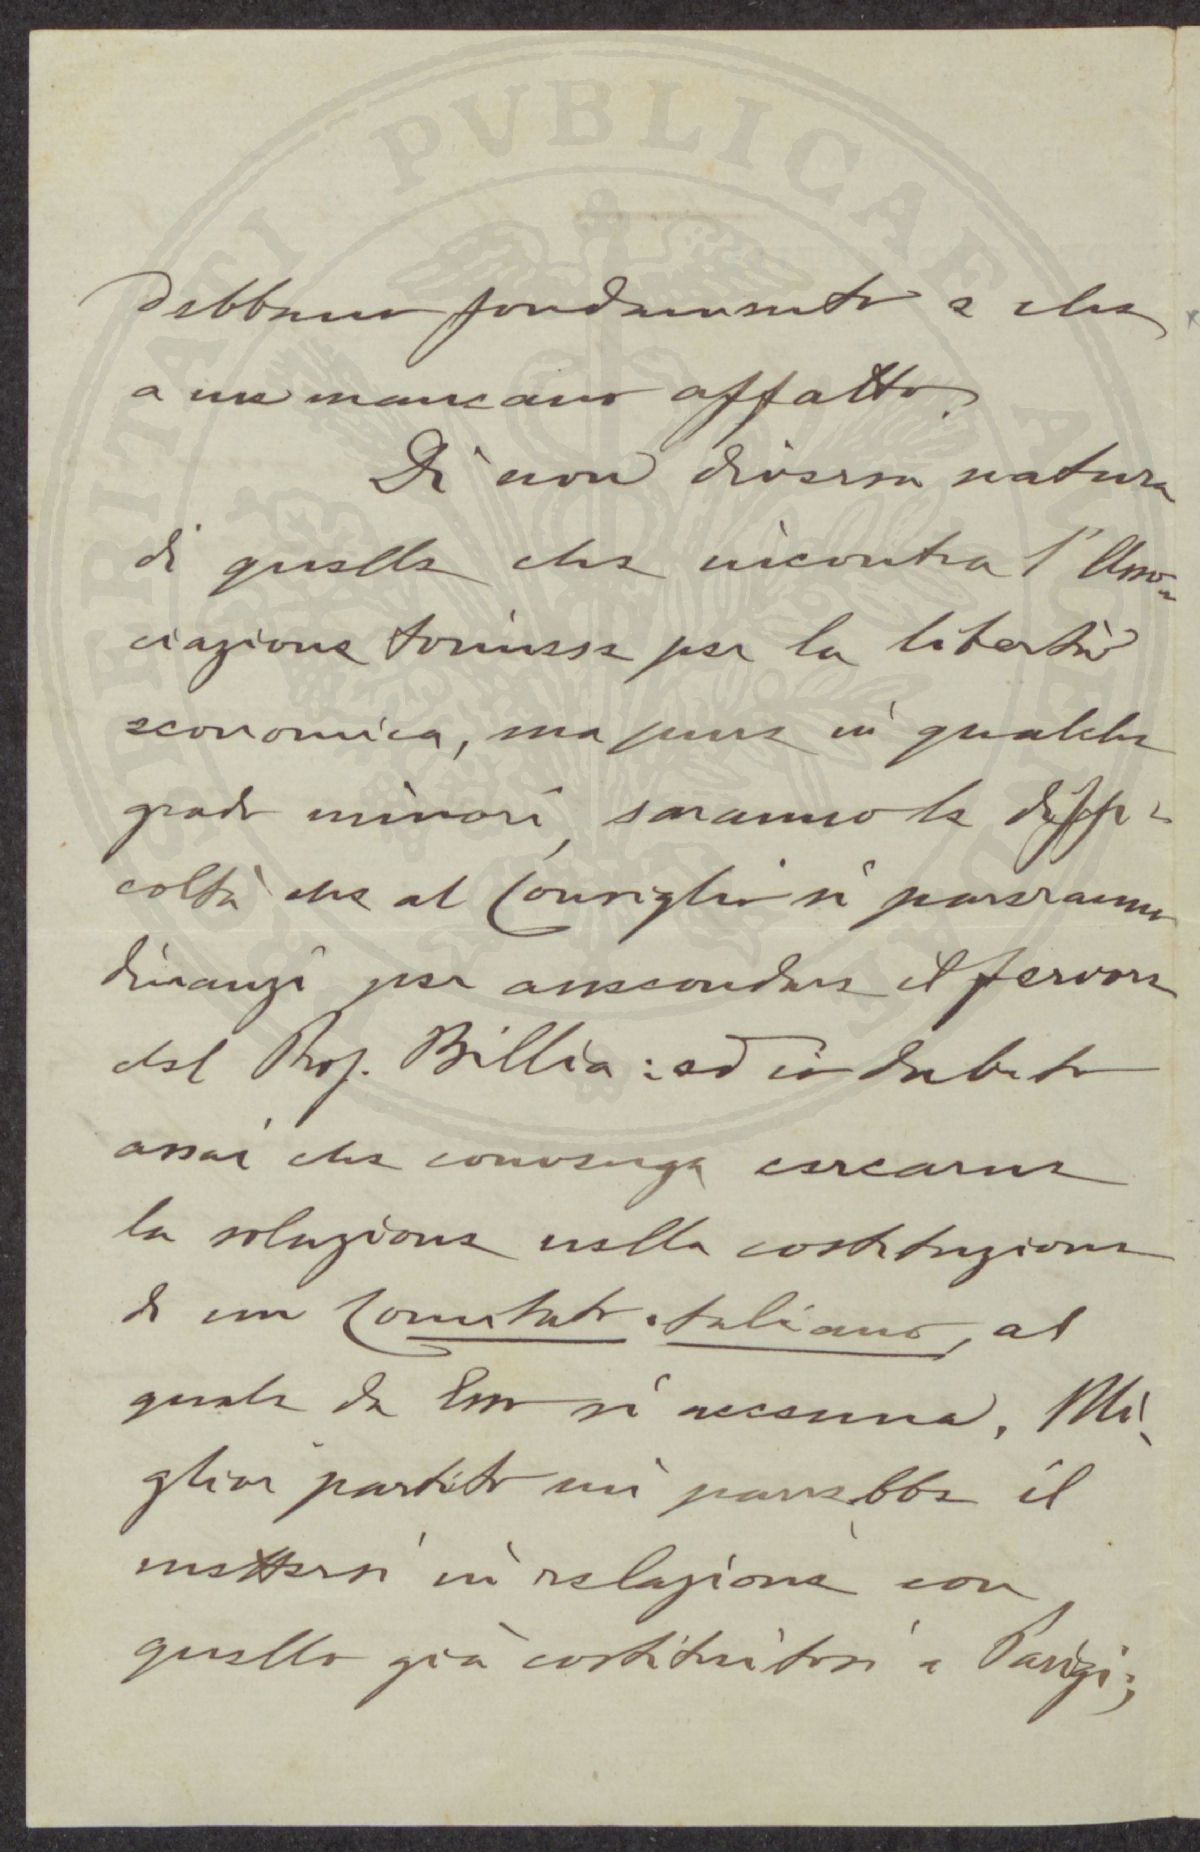 PROSPERITATI PVBLICAE AVGENDAE
debbano fondamento e che
a me mancano affatto.
Di non diversa natura
di quelle che incontra l'Asso-
ciazione torinese per la libertà
economica, ma pure in qualche
grado minori, saranno le diffi-
coltà che al Consiglio si pareranno
dinanzi per assecondare il fervore
del Prof. Billia: ed io dubito
assai che convenga cercarne
la soluzione nella costituzione
di un Comitato italiano, al
quale da Esso si accenna. Mi-
glior partito mi parrebbe il
mettersi in relazione con
quello già costituitosi a Parigi;